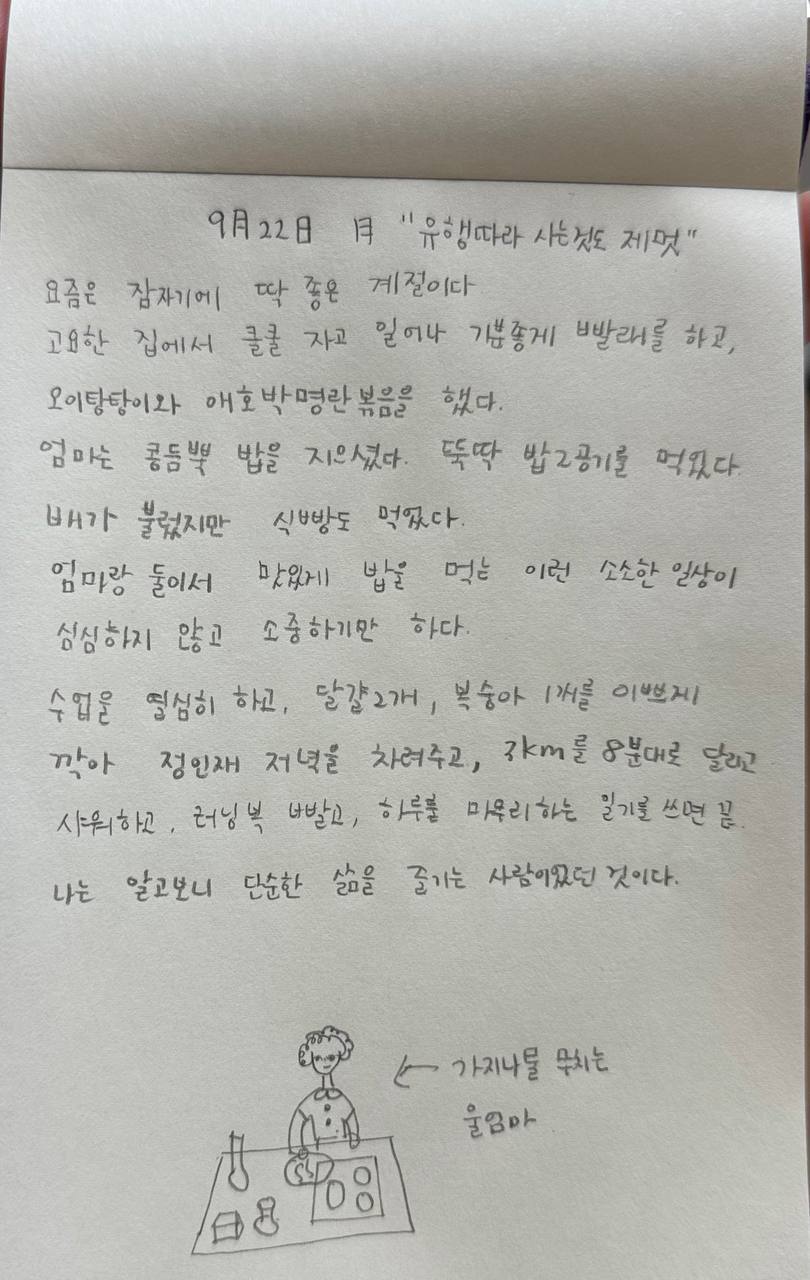 9月22日 月 "유행따라 사는것도 제멋"
요즘은 잠자기에 딱 좋은 계절이다
고요한 집에서 쿨쿨 자고 일어나 기분좋게 빨래를 하고,
오이탕탕이와 애호박명란볶음을 했다.
엄마는 콩듬뿍 밥을 지으셨다. 뚝딱 밥2공기를 먹었다.
배가 불렀지만 식빵도 먹었다.
엄마랑 둘이서 맛있게 밥을 먹는 이런 소소한 일상이
심심하지 않고 소중하기만 하다.
수업을 열심히 하고, 달걀2개, 복숭아 1개를 이쁘게
깍아 정인재 저녁을 차려주고, 3km를 8분대로 달리고
샤워하고, 러닝복 빨고, 하루를 마무리하는 일기를 쓰면 끝.
나는 알고보니 단순한 삶을 즐기는 사람이었던 것이다.
← 가지나물 무치는
울엄마